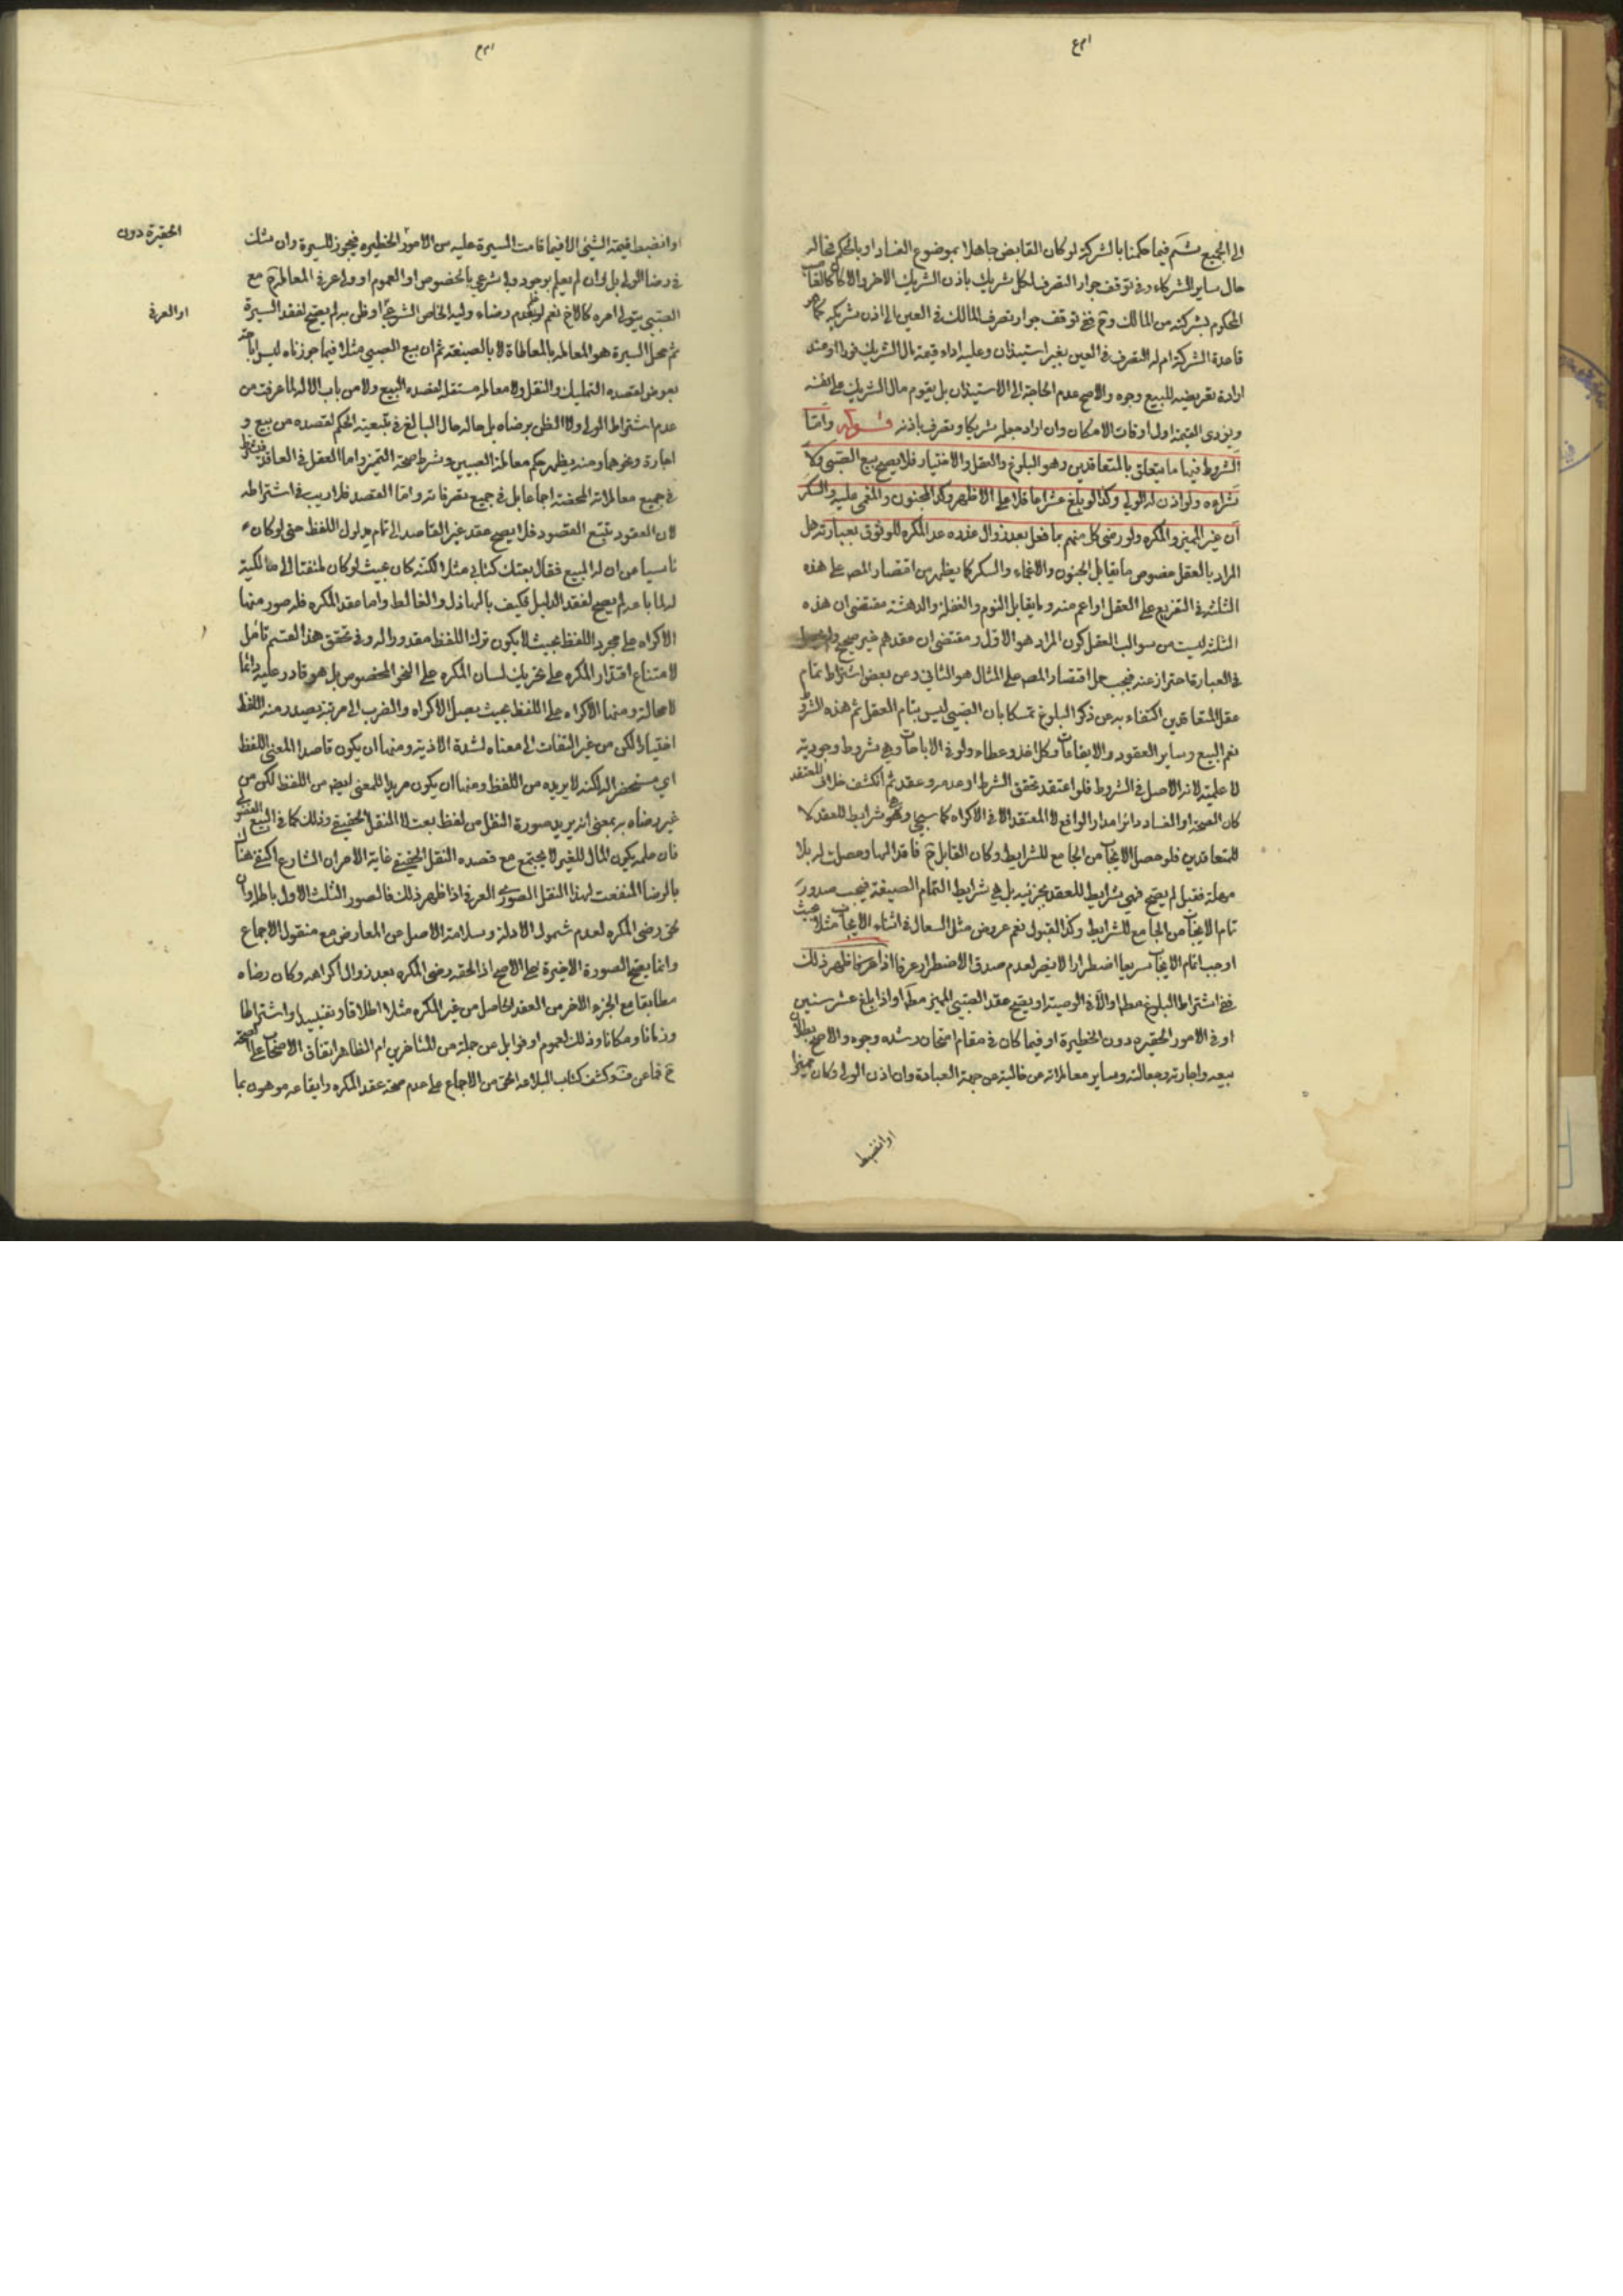 الى الجميع ثم فيما حكمنا بالشركة لو كان القابض جاهلا بموضوع الفساد او بالحكم فحاله
حال ساير الشركاء وفى توقف جواز التصرف لكل شريك باذن الشريك الاخر والا كالغاصب
المحكوم بشركته من المالك و فى توقف جواز تصرف المالك فى العين الى اذن شريكه كما هو
قاعدة الشركة ام له التصرف فى العين بغير استيذان وعليه اداء قيمة مال الشريك فورا او عند
ارادة تعريضه للبيع وجوه والاصح عدم الحاجة الى الاستيذان بل يقوم مال الشريك على نفسه
ويؤدى القيمة اول اوقات الامكان وان اراد جعله شريكا وتصرف باذنه قوله واما
الشروط فيها ما يتعلق بالمتعاقدين وهو البلوغ والعقل والاختيار فلا يصح بيع الصبى ولا
شراءه ولو اذن له الولي وكذا لو بلغ عشرا عاقلا على الاظهر وكذا المجنون والمغمى عليه والسكر
ان غير المميز والمكره ولو رضى كل منهم بما فعل بعد زوال عذره عدا المكره للوثوق بعبارته هل
المراد بالعقل خصوص ما يقابل الجنون والاغماء والسكر كما يظهر من اقتصار المص على هذه
الثلثة فى التفريع على العقل او اعم منه وما يقابل النوم والغفلة والدهشة مقتضى ان هذه
الثلثة ليست من سوالب العقل كون المراد هو الاول ومقتضى ان عقدهم غير صحيح
فى العبارة احتراز عنه فيجب حمل اقتصار المص على المثال هو الثاني وعن بعض اشتراط تمام
عقل المتعاقدين اكتفاء به عن ذكر البلوغ تمسكا بان الصبى ليس بتام العقل ثم هذه الشروط
تعم البيع وساير العقود والايقاعات وكل اخذ وعطاء ولو فى الاباحات وهى شروط وجودية
لا علمية لانه الاصل فى الشروط فلو اعتقد تحقق الشرط او عدمه وعقد ثم انكشف خلاف المعتقد
كان الصحة او الفساد دائرا مدار الواقع لا المعتقد الا فى الاكراه كما سيجى وهو شرايط للعقد لا
للمتعاقدين فلو حصل الايجاب من الجامع للشرايط وكان القابل فاقدا لها وحصلت له بلا
مهلة فقبل لم يصح فهى شرايط للعقد بجزئيه بل هى شرايط التمام الصيغة فيجب صدور
تمام الايجاب من الجامع للشرايط وكذا القبول نعم عروض مثل السعال فى اثناء الايجاب مثلا بحيث
اوجب اتمام الايجاب سريعا اضطرارا لا يضر لعدم صدق الاضطرار عرفا اذا عرفت ما ظهر ذلك
ففى اشتراط البلوغ مطلقا او الا فى الوصية او يصح عقد الصبى المميز مطلقا او اذا بلغ عشر سنين
او فى الامور الحقيره دون الخطيرة او فيما كان فى مقام امتحان رشده وجوه والاصح بطلان
بيعه واجارته وجعالته وساير معاملاته من غالبية من جهة العبادة وان اذن الولى وكان مميزا
او انضبط
او انضبط قيمة الشئ الا فيما قامت السيرة عليه من الامور الخطيره فيجوز للسيرة وان شك
الحقيرة دون
فى رضا الولى بل وان لم يعلم بوجود ولى شرعي بالخصوص او العموم او ولى عرفى المعاملة مع
الصبى يتولى امره كالاخ نعم لو علم عدم رضاء وليه الخاص الشرعي او ظن به لم يصح لفقد السيرة
او العرفى
ثم محل السيرة هو المعاملة بالمعاطاة لا بالصيغة ثم ان بيع الصبى مثلا فيما جوزناه ليس اباحة
بعوض لقصده التمليك والنقل ولا معاملة مستقلة لقصده البيع ولا من باب الالة لما عرفت من
عدم اشتراط الولى ولا الظن برضاه بل حاله حال البالغ فى تبعية الحكم لقصده من بيع و
اجارة ونحوهما ومنه يظهر حكم معاملة الصبيين وشرط صحة التميز واما العقل فى العاقد
فى جميع معاملاته المحققة اجماعا بل فى جميع تصرفاته واما القصد فلا ريب فى اشتراطه
لان العقود تتبع القصود فلا يصح عقد غير القاصد الى تمام مدلول اللفظ حتى لو كان
ناسيا من ان له المبيع فقال بعتك كتابى مثلا لكنه كان بحيث لو كان ملتفتا الى مالكية
له لما باعه لم يصح لفقد الدليل فكيف بالهاذل والغالط واما عقد المكره فله صور منها
الاكراه على مجرد اللفظ بحيث لا يكون ترك اللفظ مقدورا له وفى تحقق هذا القسم تامل
لامتناع اقتدار المكره على تحريك لسان المكره على النحو المخصوص بل هو قادر عليه دائما
لا محالة ومنها الاكراه على اللفظ بحيث يصل الاكراه والضرب الى مرتبة يصدر منه اللفظ
اختيارا لكن من غير التفات الى معناه لشدة الاذية ومنها ان يكون قاصدا المعنى اللفظ
اى مستحضرا له لكنه لا يريده من اللفظ ومنها ان يكون مريدا للمعنى ايضا من اللفظ لكن من
غير رضاه به بمعنى انه يريد صورة النقل من لفظ بعت لا النقل الحقيقى وذلك كما فى البيع الفضولى
فان علمه بكون المال للغير لا يجتمع مع قصده النقل الحقيقى غاية الامر ان الشارع اكتفى هنا
بالرضا المنفعت لهذا النقل الصورى العرفى اذا ظهر ذلك فالصور الثلث الاول باطلة وان
لحق رضى المكره لعدم شمول الادلة وسلامة الاصل عن المعارض مع منقول الاجماع
وانما يصح الصورة الاخيرة على الاصح اذا لحقه رضى المكره بعد زوال اكراهه وكان رضاه
مطابقا مع الجزء الاخر من العقد الحاصل من غير المكره مثلا اطلاقا وتقييدا واشتراطا
وزمانا ومكانا وذلك لعموم اوفوا بل عن جملة من المتاخرين ام الظاهر اتفاق الاصحاب على الصحة
فما عن وكشف كتاب البلاغه الحق من الاجماع على عدم صحة عقد المكره وايقاعه موهون بما